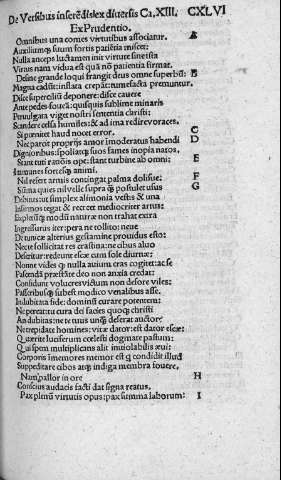 De Versibus inserēdis lex diuersis Ca. XIII. CXLVI
Ex Prudentio.
Omnibus una comes virtutibus associatur. A
Auxiliumq; suum fortis patiētia miscet:
Nulla anceps luctamen init virtute sine ista
Virtus nam vidua est quā nō patientia firmat.
Desine grande loqui frangit deus omne superbū: B
Magna cadūt: inflata crepāt: tumefacta premuntur.
Disce superciliū deponere: disce cauere
Ante pedes foueā: quisquis sublime minaris
Peruulgata viget nostri sententia christi:
Scandere celsa humiles: & ad ima redire voraces.
Si pœniter haud nocet error. C
Nec parcit propriis amor immoderatus habendi D
Dignioribus: spoliatq; suos fames inopia natos,
Stant tuti rationis ope: stant turbine ab omni: E
Immunes fortesq; animi.
Nil refert armis contingat palma dolisue: F
Summa quies nil velle supra q̄ postulet usus G
Debitus: ut simplex alimonia vestis & una
Infirmos tegat & recreet mediocriter artus:
Expletūq; modū naturæ non trahat extra
Ingressurus iter: pera ne tollito: neue
De tunicæ alterius gestamine prouidus esto:
Nec te sollicitet res crastina: ne cibus aluo
Defuerit: redeunt escæ cum sole diurnæ:
Nonne vides q̄ nulla auium cras cogitet: ac se
Pascendā præstāte deo non anxia credat:
Confidunt volucres victum non defore viles:
Passeribusq; subest modico venalibus asse.
Indubitata fide: dominū curare potentem:
Ne pereāt: tu cura dei facies quoq; christi
An dubitas: ne te tuus unq̄ deserat auctor?
Ne trepidate homines: vitæ dator: est dator escæ:
Quærite luciferum celesti dogmate pastum:
Qui spem multiplicans alit inuiolabilis æui:
Corporis immemores memor est q̄ condidit illud
Suppeditare cibos atq; indiga membra fouere,
Num pallor in ore H
Conscius audacis facti dat signa reatus,
Pax plenū virtutis opus: pax summa laborum: I